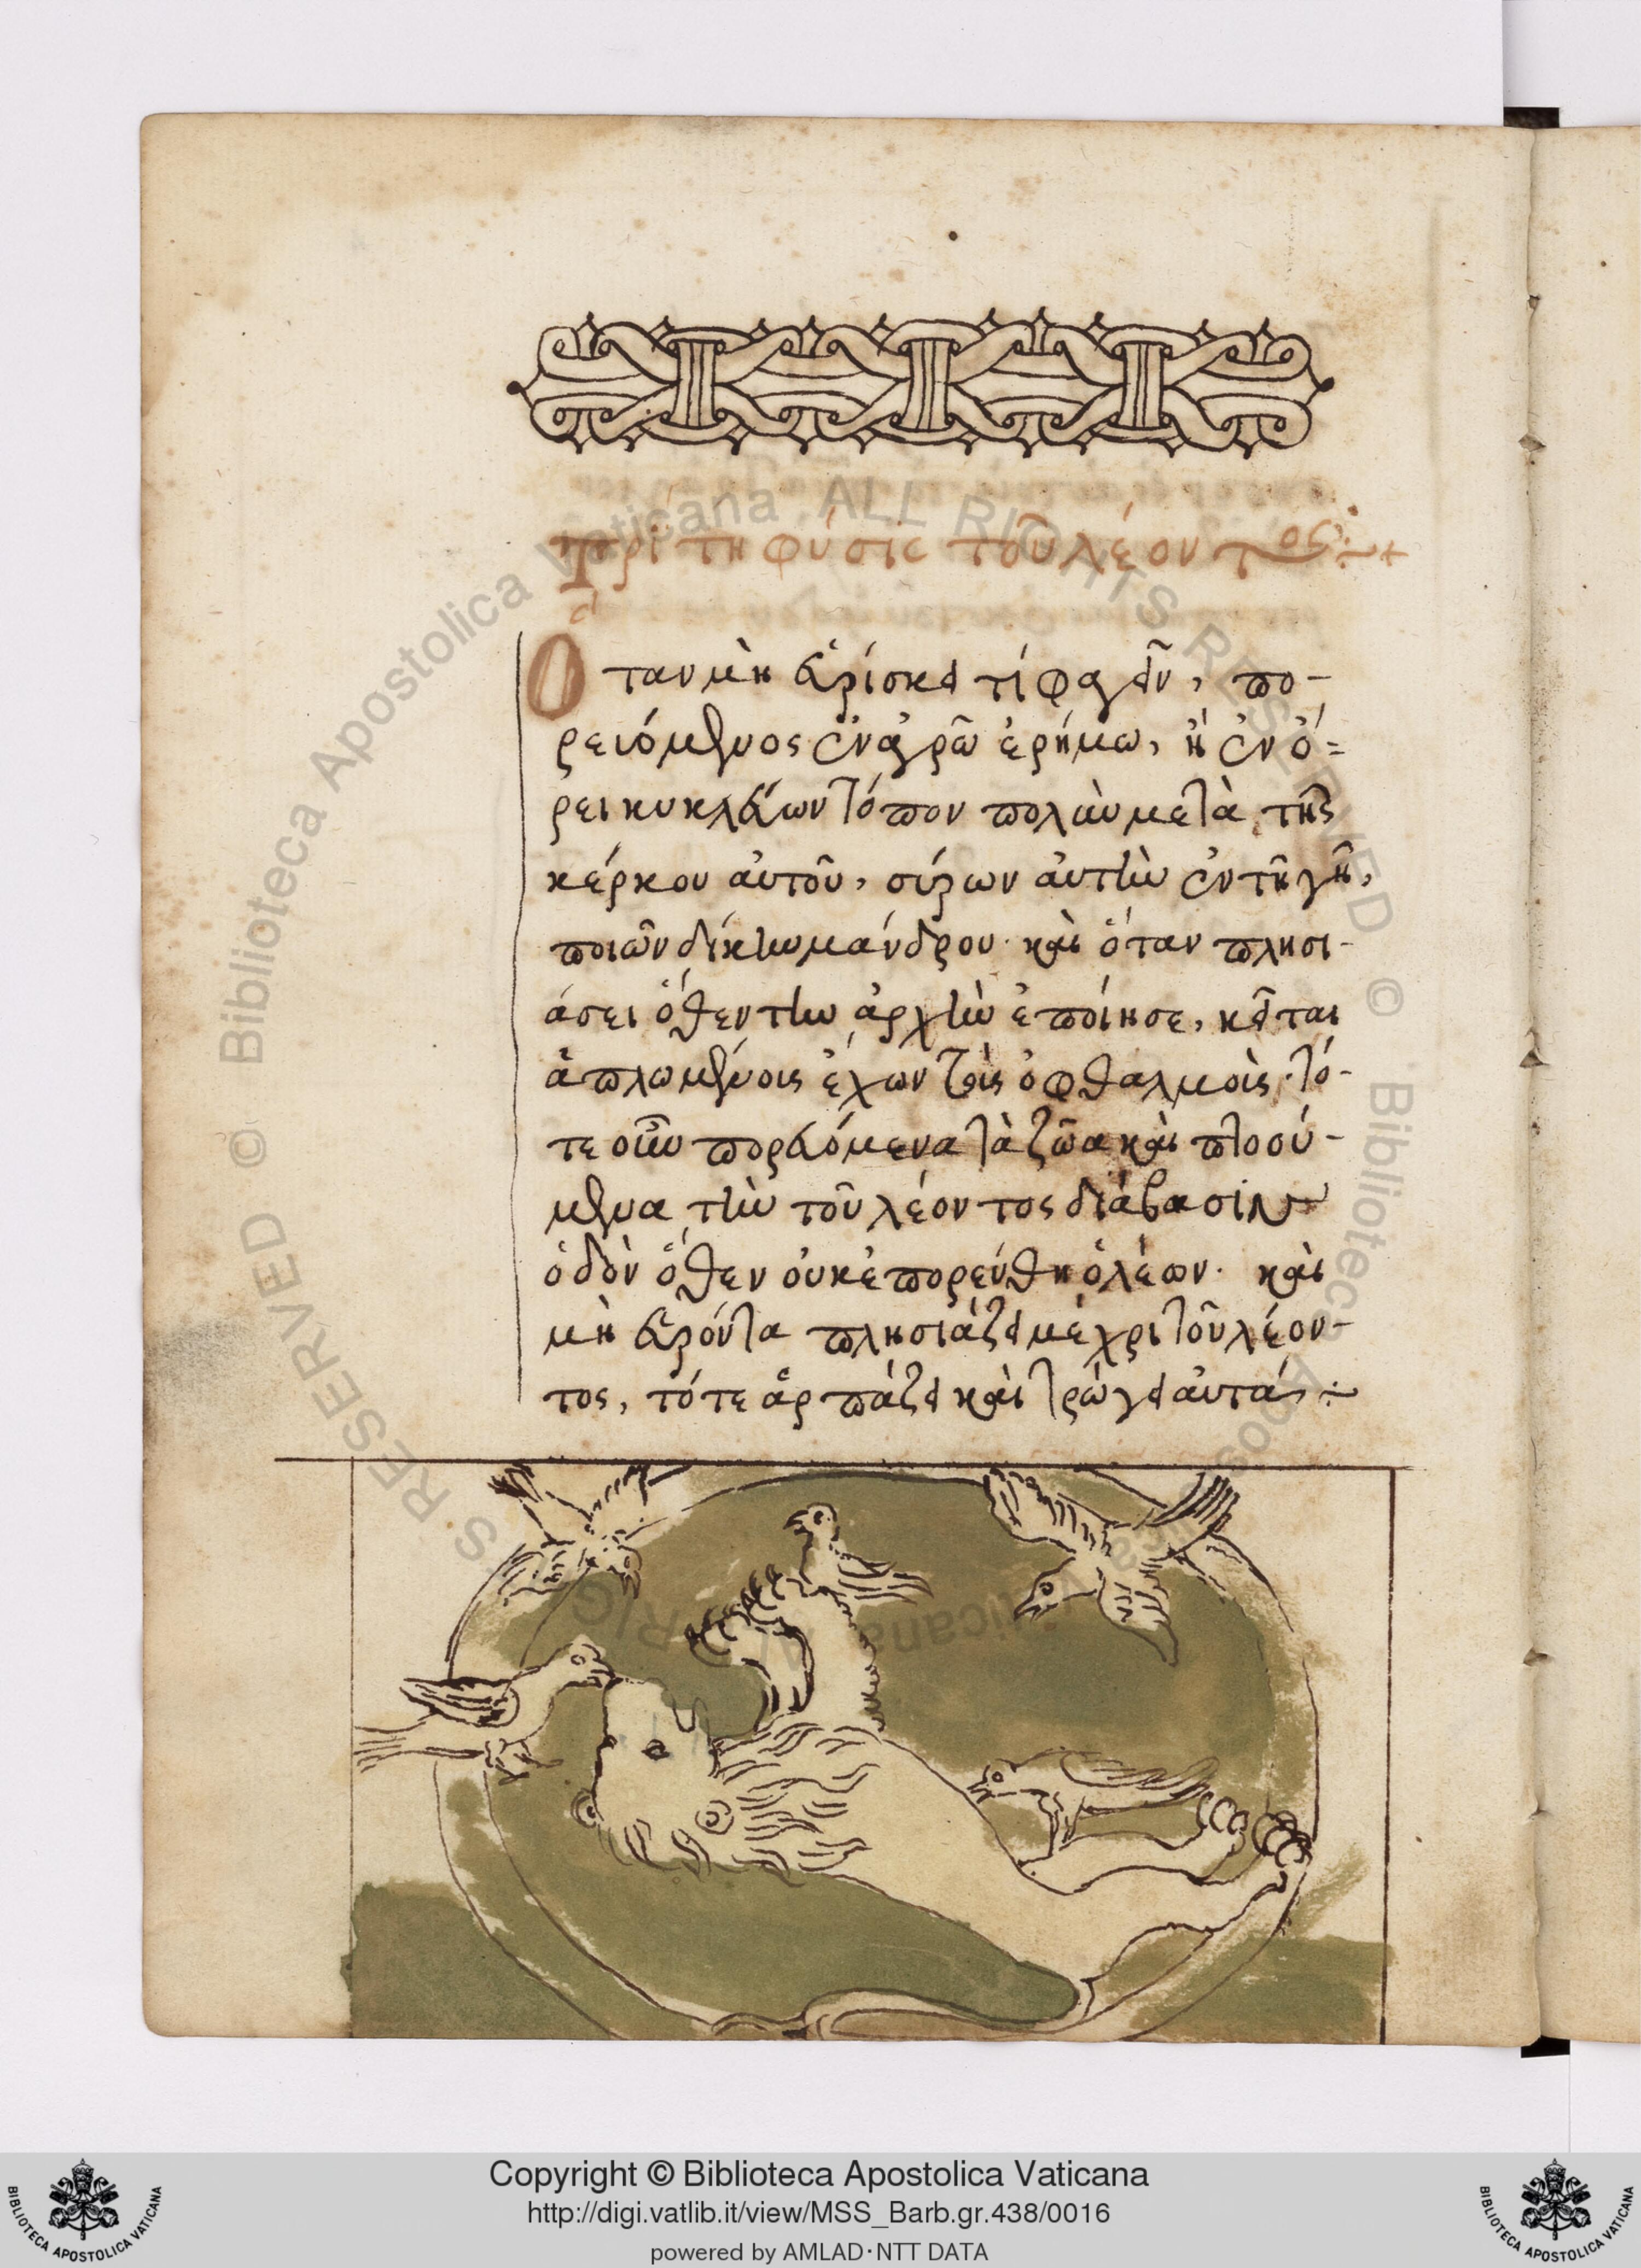 περὶ τη φύσις τοῦ λέοντος
α
Ὅταν μὴ εὑρίσκει τί φαγεῖν, πο-
ρειόμενος ἐν ἀγρῶ ἐρήμω, ἢ ἐν ὄ-
ρει κυκλεύων τόπον πολὺν μετὰ τῆς
κέρκου αὐτοῦ, σύρων αὐτὴν ἐν τῆ γῆ,
ποιῶν δίκην μάνδρου· καὶ ὅταν πλησι-
άσει ὅθεν τὴν ἀρχὴν ἐποίησε, κεῖται
ἁπλωμένοις ἔχων τοὶς ὀφθαλμοὶς· τό-
τε οὖν πορευόμενα τὰ ζῶα καὶ πτοού-
μενα τὴν τοῦ λέοντος διάβασιν
ὁδὸν ὅθεν οὐκ ἐπορεύθη ὁ λέων· καὶ
μὴ εὑρόντα πλησιάζει μέχρι τοῦ λέον-
τος, τότε ἁρπάζει καὶ τρώγει αὐτά
© Biblioteca Apostolica Vaticana ALL RIGHTS RESERVED
© Biblioteca Apostolica Vaticana ALL RIGHTS RESERVED
Copyright © Biblioteca Apostolica Vaticana
http://digi.vatlib.it/view/MSS_Barb.gr.438/0016
powered by AMLAD·NTT DATA
BIBLIOTECA APOSTOLICA VATICANA
BIBLIOTECA APOSTOLICA VATICANA